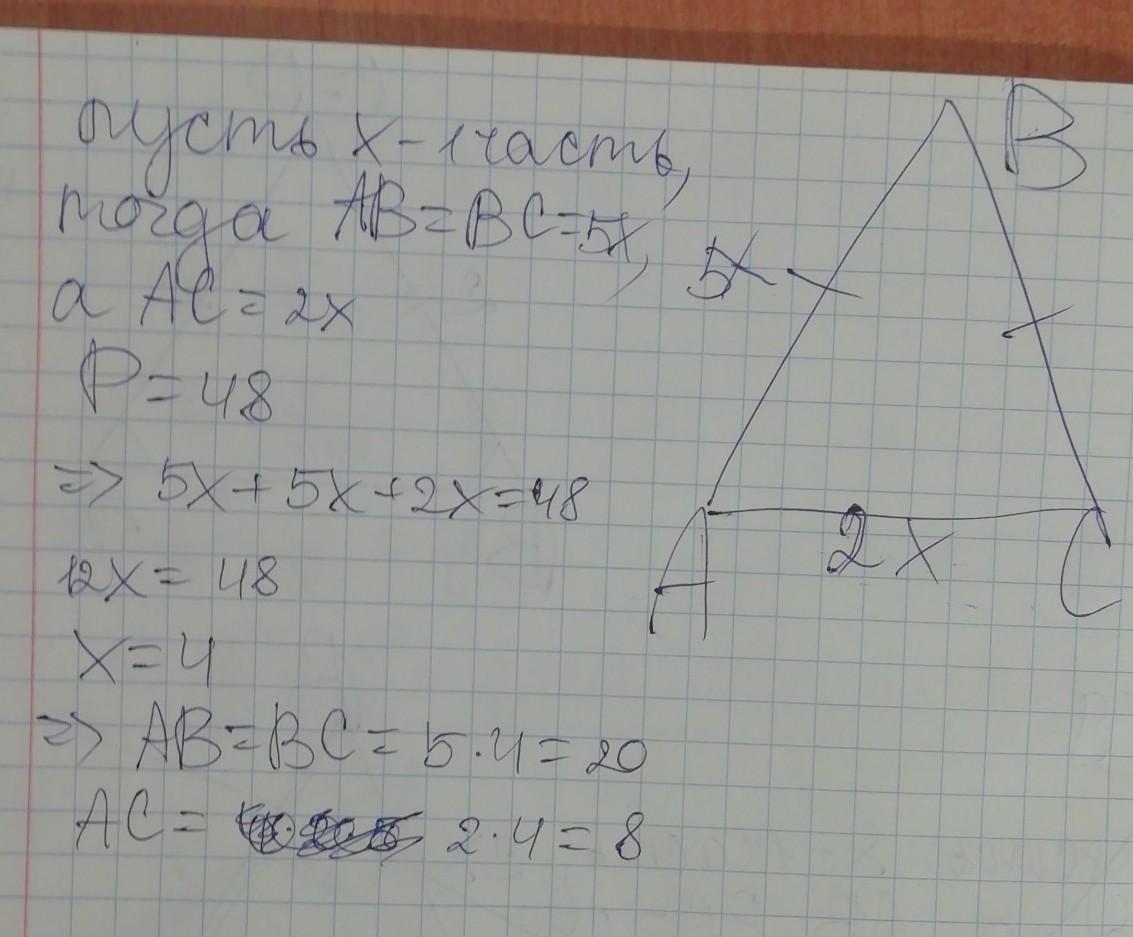 пусть x - 1 часть,
тогда AB = BC = 5x,
а AC = 2x
P = 48
=> 5x + 5x + 2x = 48
12x = 48
x = 4
=> AB = BC = 5 · 4 = 20
AC = 2 · 4 = 8
B
5x
A
2x
C